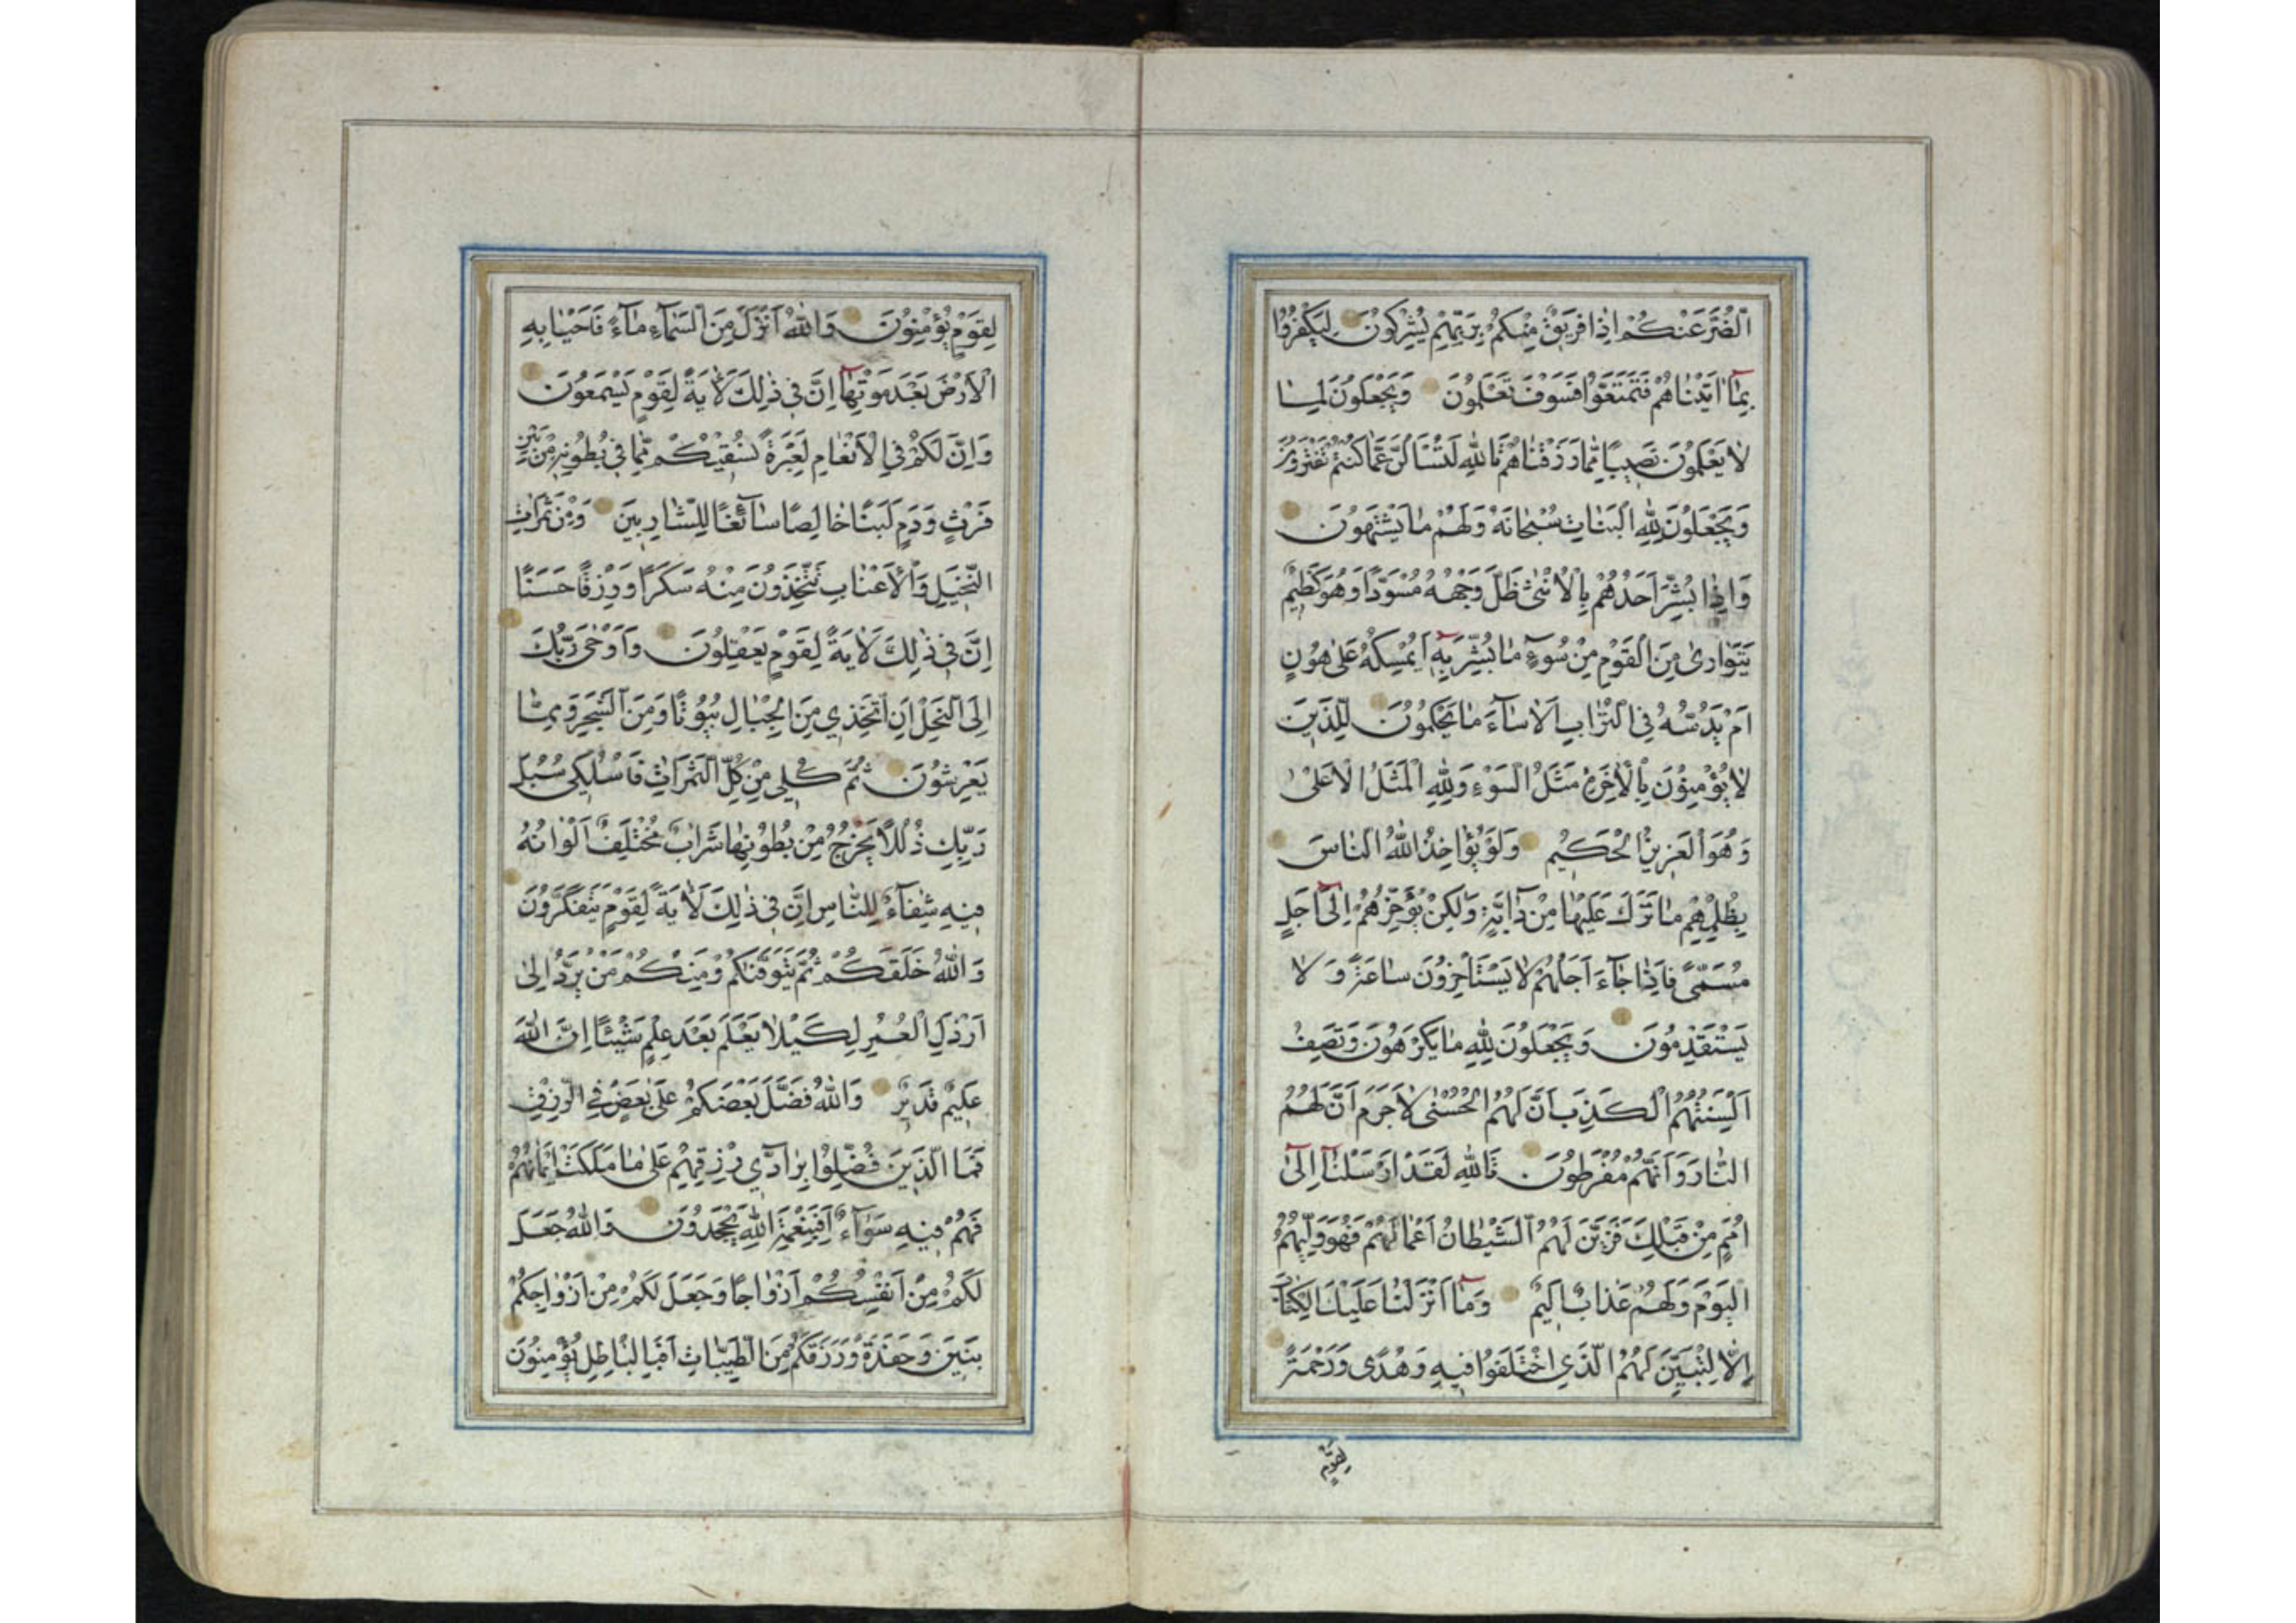 الضُّرَّ عَنْكُمْ اِذَا فَرِيقٌ مِنْكُمْ بِرَبِّهِمْ يُشْرِكُونَ لِيَكْفُرُوا
بِمَآ اٰتَيْنَاهُمْ فَتَمَتَّعُوا فَسَوْفَ تَعْلَمُونَ وَيَجْعَلُونَ لِمَا
لَا يَعْلَمُونَ نَصِيبًا مِمَّا رَزَقْنَاهُمْ تَاللّٰهِ لَتُسْأَلُنَّ عَمَّا كُنْتُمْ تَفْتَرُونَ
وَيَجْعَلُونَ لِلّٰهِ الْبَنَاتِ سُبْحَانَهُ وَلَهُمْ مَا يَشْتَهُونَ
وَاِذَا بُشِّرَ اَحَدُهُمْ بِالْاُنْثٰى ظَلَّ وَجْهُهُ مُسْوَدًّا وَهُوَ كَظِيمٌ
يَتَوَارٰى مِنَ الْقَوْمِ مِنْ سُوٓءِ مَا بُشِّرَ بِهِٓ اَيُمْسِكُهُ عَلٰى هُونٍ
اَمْ يَدُسُّهُ فِي التُّرَابِ اَلَا سَآءَ مَا يَحْكُمُونَ لِلَّذِينَ
لَا يُؤْمِنُونَ بِالْاٰخِرَةِ مَثَلُ السَّوْءِ وَلِلّٰهِ الْمَثَلُ الْاَعْلٰى
وَهُوَ الْعَزِيزُ الْحَكِيمُ وَلَوْ يُؤَاخِذُ اللّٰهُ النَّاسَ
بِظُلْمِهِمْ مَا تَرَكَ عَلَيْهَا مِنْ دَآبَّةٍ وَلٰكِنْ يُؤَخِّرُهُمْ اِلٰٓى اَجَلٍ
مُسَمًّى فَاِذَا جَآءَ اَجَلُهُمْ لَا يَسْتَأْخِرُونَ سَاعَةً وَلَا
يَسْتَقْدِمُونَ وَيَجْعَلُونَ لِلّٰهِ مَا يَكْرَهُونَ وَتَصِفُ
اَلْسِنَتُهُمُ الْكَذِبَ اَنَّ لَهُمُ الْحُسْنٰى لَا جَرَمَ اَنَّ لَهُمُ
النَّارَ وَاَنَّهُمْ مُفْرَطُونَ تَاللّٰهِ لَقَدْ اَرْسَلْنَآ اِلٰٓى
اُمَمٍ مِنْ قَبْلِكَ فَزَيَّنَ لَهُمُ الشَّيْطَانُ اَعْمَالَهُمْ فَهُوَ وَلِيُّهُمُ
الْيَوْمَ وَلَهُمْ عَذَابٌ اَلِيمٌ وَمَآ اَنْزَلْنَا عَلَيْكَ الْكِتَابَ
اِلَّا لِتُبَيِّنَ لَهُمُ الَّذِي اخْتَلَفُوا فِيهِ وَهُدًى وَرَحْمَةً
لِقَوْمٍ
لِقَوْمٍ يُؤْمِنُونَ وَاللّٰهُ اَنْزَلَ مِنَ السَّمَآءِ مَآءً فَاَحْيَا بِهِ
الْاَرْضَ بَعْدَ مَوْتِهَآ اِنَّ فِي ذٰلِكَ لَاٰيَةً لِقَوْمٍ يَسْمَعُونَ
وَاِنَّ لَكُمْ فِي الْاَنْعَامِ لَعِبْرَةً نُسْقِيكُمْ مِمَّا فِي بُطُونِهِ مِنْ بَيْنِ
فَرْثٍ وَدَمٍ لَبَنًا خَالِصًا سَآئِغًا لِلشَّارِبِينَ وَمِنْ ثَمَرَاتِ
النَّخِيلِ وَالْاَعْنَابِ تَتَّخِذُونَ مِنْهُ سَكَرًا وَرِزْقًا حَسَنًا
اِنَّ فِي ذٰلِكَ لَاٰيَةً لِقَوْمٍ يَعْقِلُونَ وَاَوْحٰى رَبُّكَ
اِلَى النَّحْلِ اَنِ اتَّخِذِي مِنَ الْجِبَالِ بُيُوتًا وَمِنَ الشَّجَرِ وَمِمَّا
يَعْرِشُونَ ثُمَّ كُلِي مِنْ كُلِّ الثَّمَرَاتِ فَاسْلُكِي سُبُلَ
رَبِّكِ ذُلُلًا يَخْرُجُ مِنْ بُطُونِهَا شَرَابٌ مُخْتَلِفٌ اَلْوَانُهُ
فِيهِ شِفَآءٌ لِلنَّاسِ اِنَّ فِي ذٰلِكَ لَاٰيَةً لِقَوْمٍ يَتَفَكَّرُونَ
وَاللّٰهُ خَلَقَكُمْ ثُمَّ يَتَوَفّٰيكُمْ وَمِنْكُمْ مَنْ يُرَدُّ اِلٰى
اَرْذَلِ الْعُمُرِ لِكَيْلَا يَعْلَمَ بَعْدَ عِلْمٍ شَيْئًا اِنَّ اللّٰهَ
عَلِيمٌ قَدِيرٌ وَاللّٰهُ فَضَّلَ بَعْضَكُمْ عَلٰى بَعْضٍ فِي الرِّزْقِ
فَمَا الَّذِينَ فُضِّلُوا بِرَآدِّي رِزْقِهِمْ عَلٰى مَا مَلَكَتْ اَيْمَانُهُمْ
فَهُمْ فِيهِ سَوَآءٌ اَفَبِنِعْمَةِ اللّٰهِ يَجْحَدُونَ وَاللّٰهُ جَعَلَ
لَكُمْ مِنْ اَنْفُسِكُمْ اَزْوَاجًا وَجَعَلَ لَكُمْ مِنْ اَزْوَاجِكُمْ
بَنِينَ وَحَفَدَةً وَرَزَقَكُمْ مِنَ الطَّيِّبَاتِ اَفَبِالْبَاطِلِ يُؤْمِنُونَ